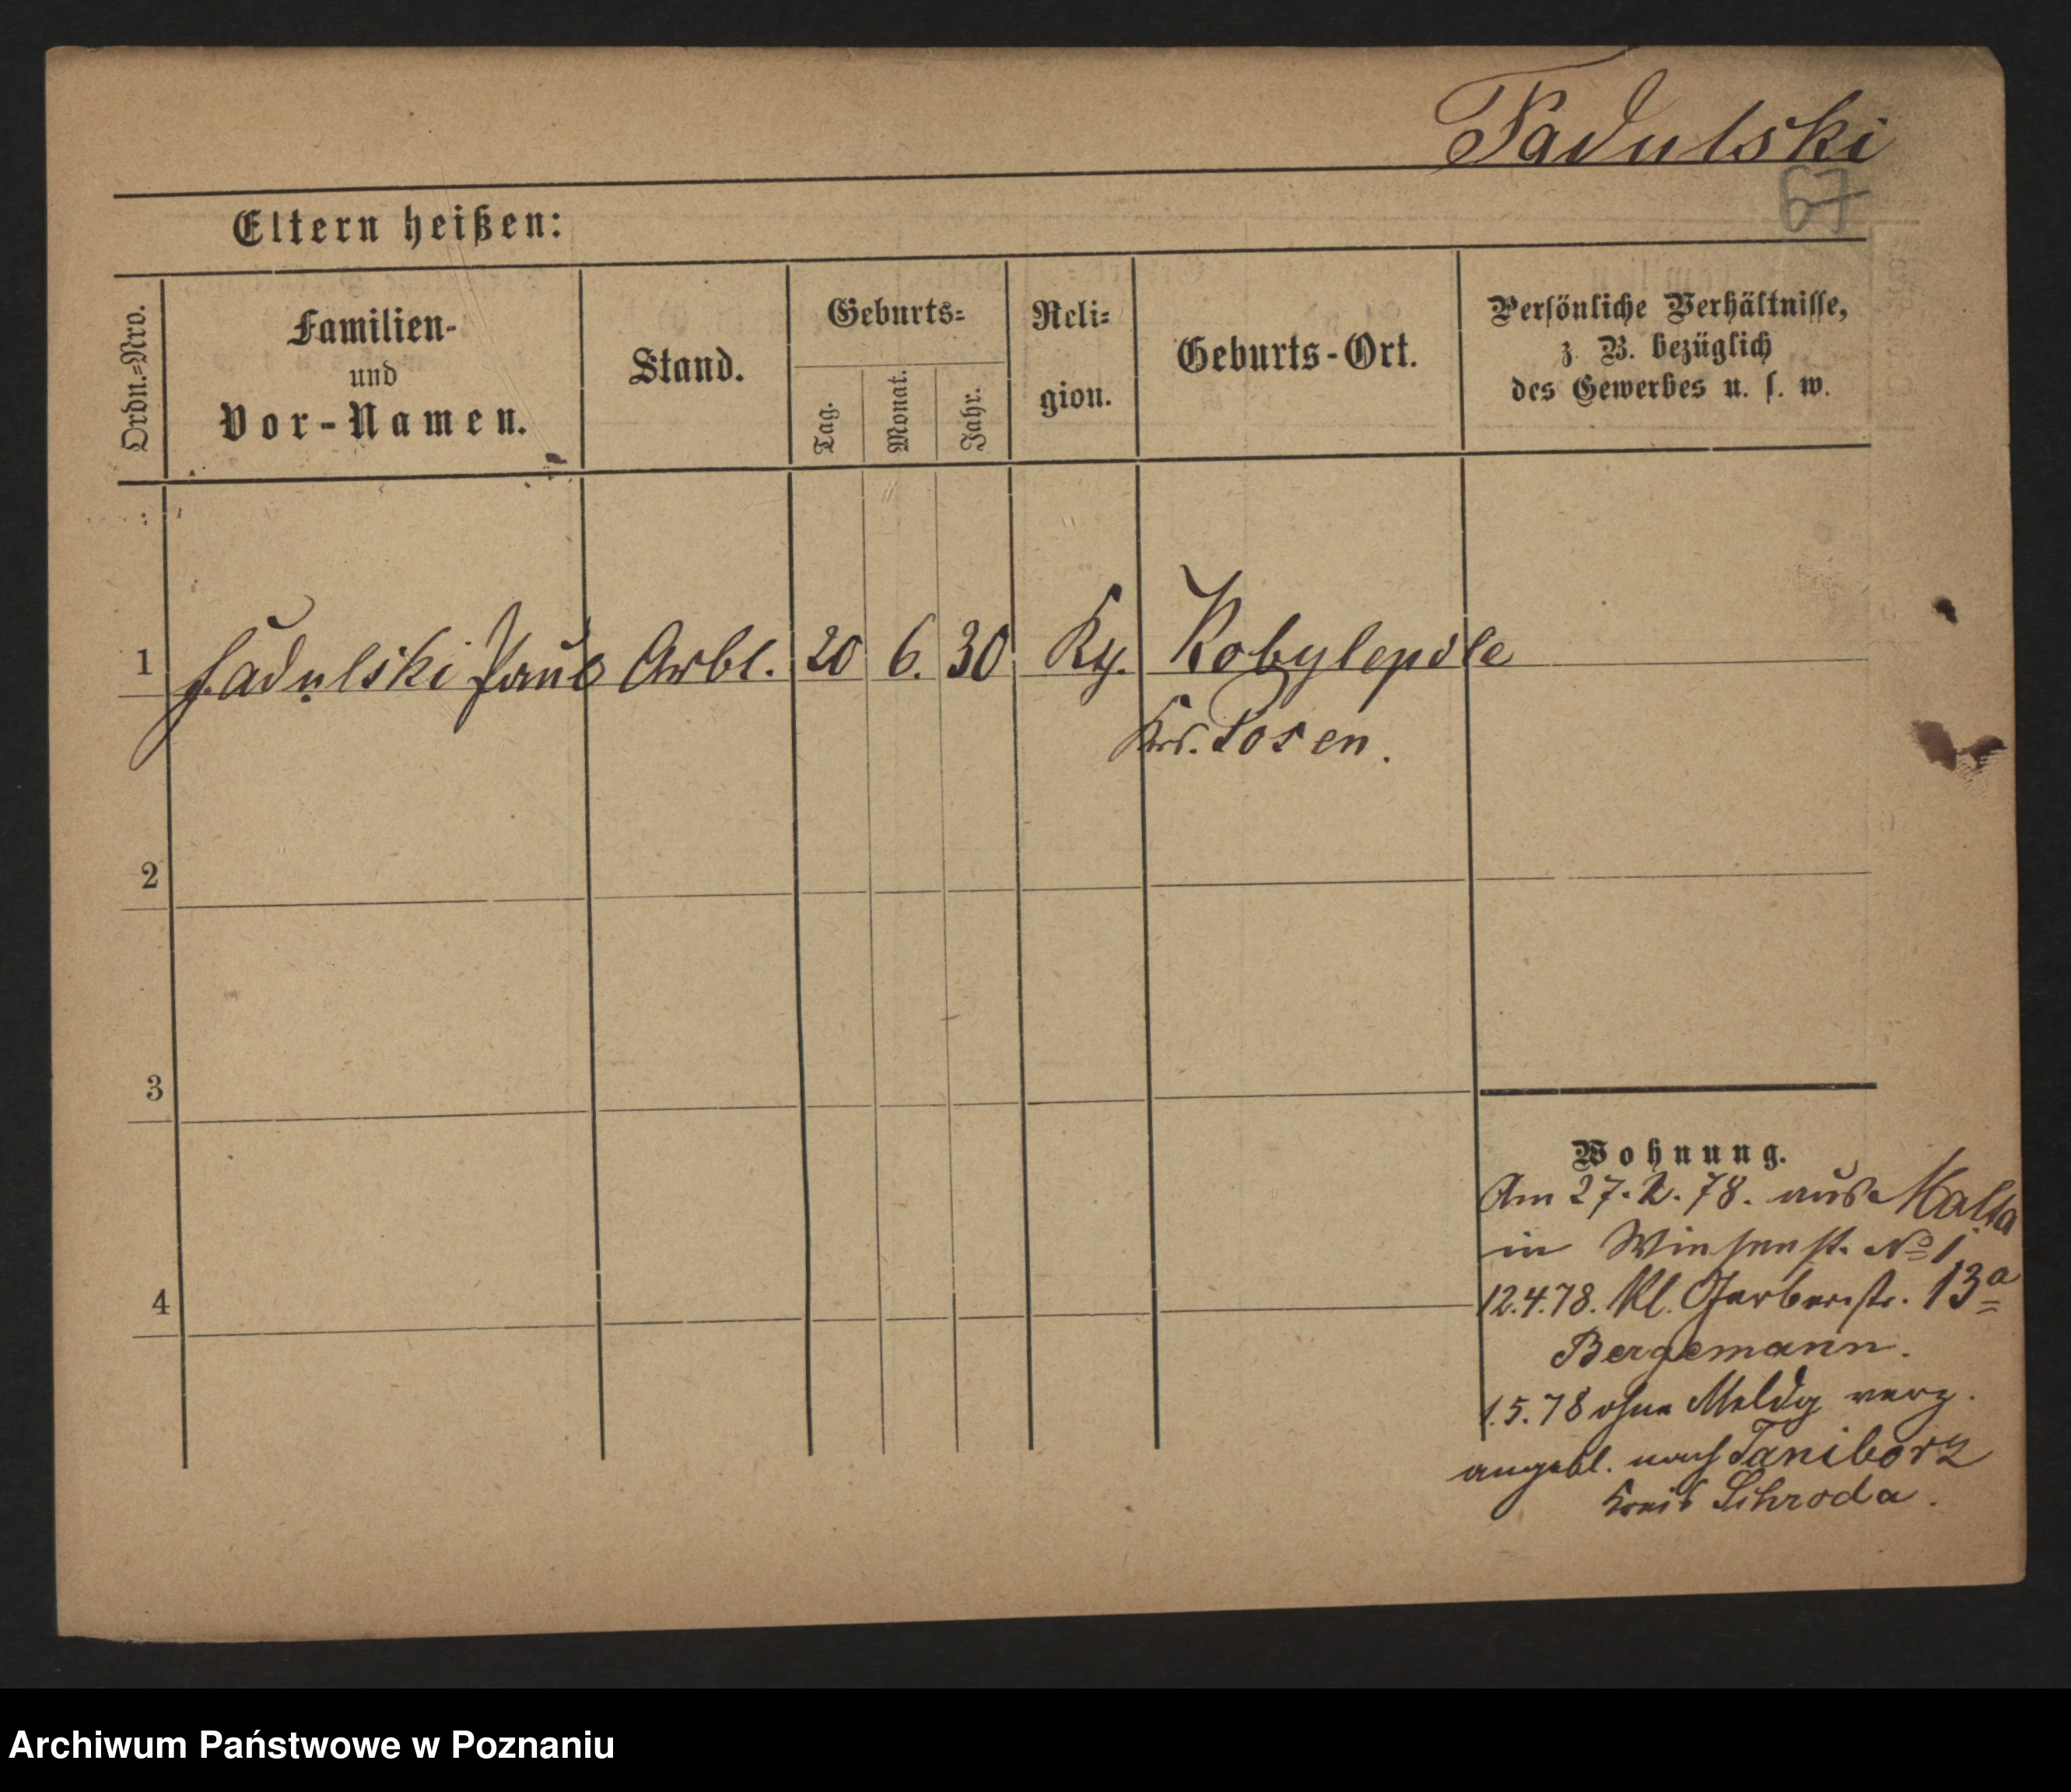 Fadulski
67
Eltern heißen:
Ordn.=Nro.
Familien-
und
Vor-Namen.
Stand.
Geburts=
Tag.
Monat.
Jahr.
Reli=
gion.
Geburts-Ort.
Persönliche Verhältnisse,
z. B. bezüglich
des Gewerbes u. s. w.
1 Fadulski Paul Arbt. 20 6. 30 Ky. Kobylepole
Krs. Posen.
2
3
4
Wohnung.
Am 27. 2. 78. aus Malta
in Wiesenst. No 1
12.4.78. Kl. Gerberstr. 13a
Bergemann.
1.5.78 ohne Meldg verz.
angebl. nach Taniborz
Kreis Schroda.
Archiwum Państwowe w Poznaniu